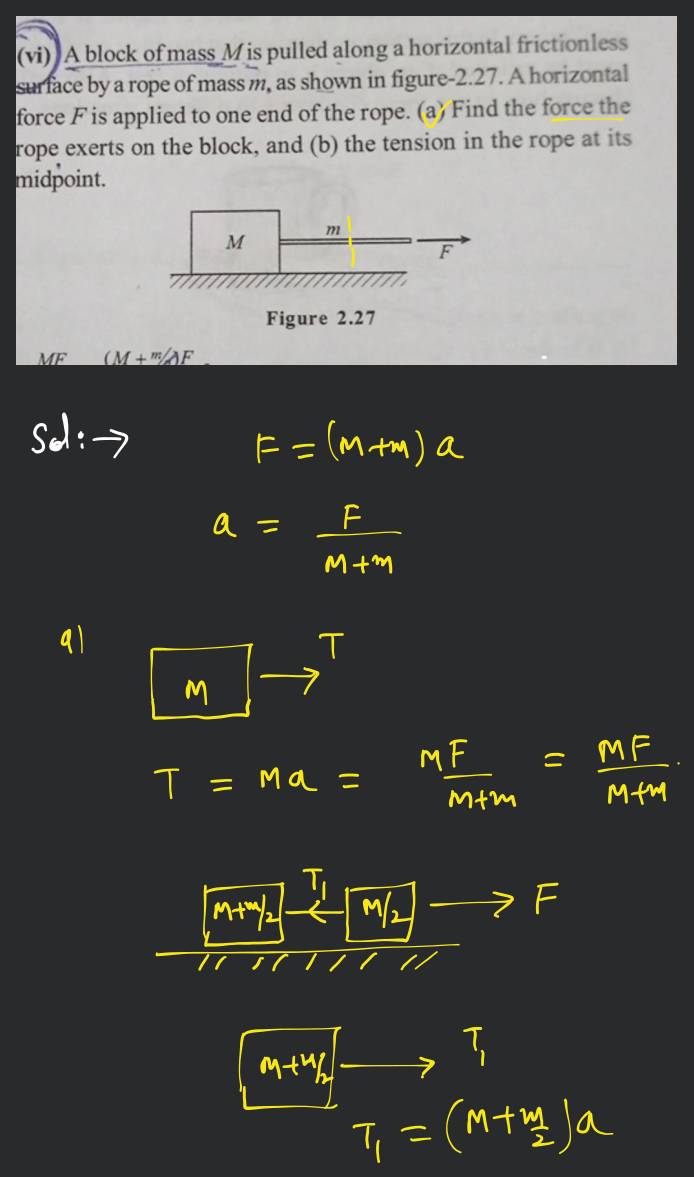 (vi) A block of mass M is pulled along a horizontal frictionless
surface by a rope of mass m, as shown in figure-2.27. A horizontal
force F is applied to one end of the rope. (a) Find the force the
rope exerts on the block, and (b) the tension in the rope at its
midpoint.
M m F
Figure 2.27
MF (M + m/2)F
Sol: →
F = (M+m) a
a = F/(M+m)
a)
M → T
T = Ma = MF/(M+m) = MF/(M+m).
M+m/2 T₁ M/2 → F
M+M/2 → T₁
T₁ = (M+m/2)a